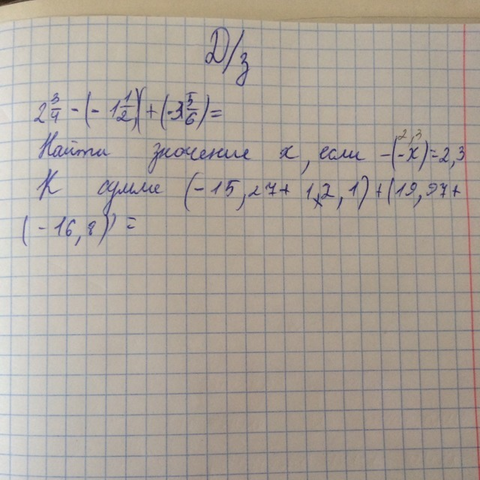 Д/з
2 3/4 - (- 1 1/2) + (-3 5/6) =
2,3
Найти значение x, если -(-x)=2,3
К сумме (-15,27+ 12,1) + (19,97+
(-16,8)) =